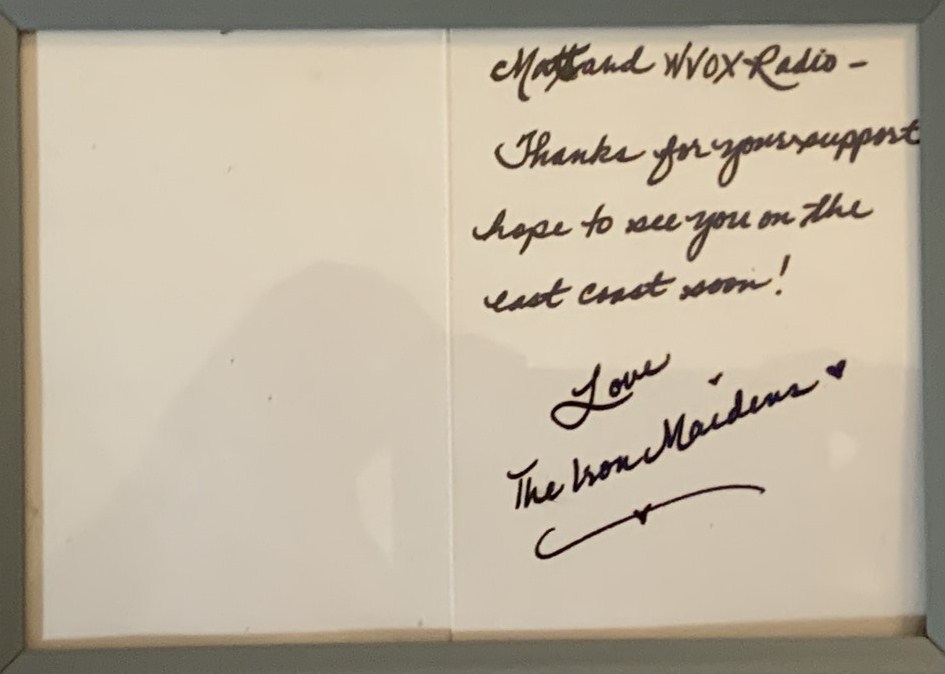 Matt and WVOX Radio -
Thanks for your support
hope to see you on the
east coast soon!
Love
The Iron Maidens